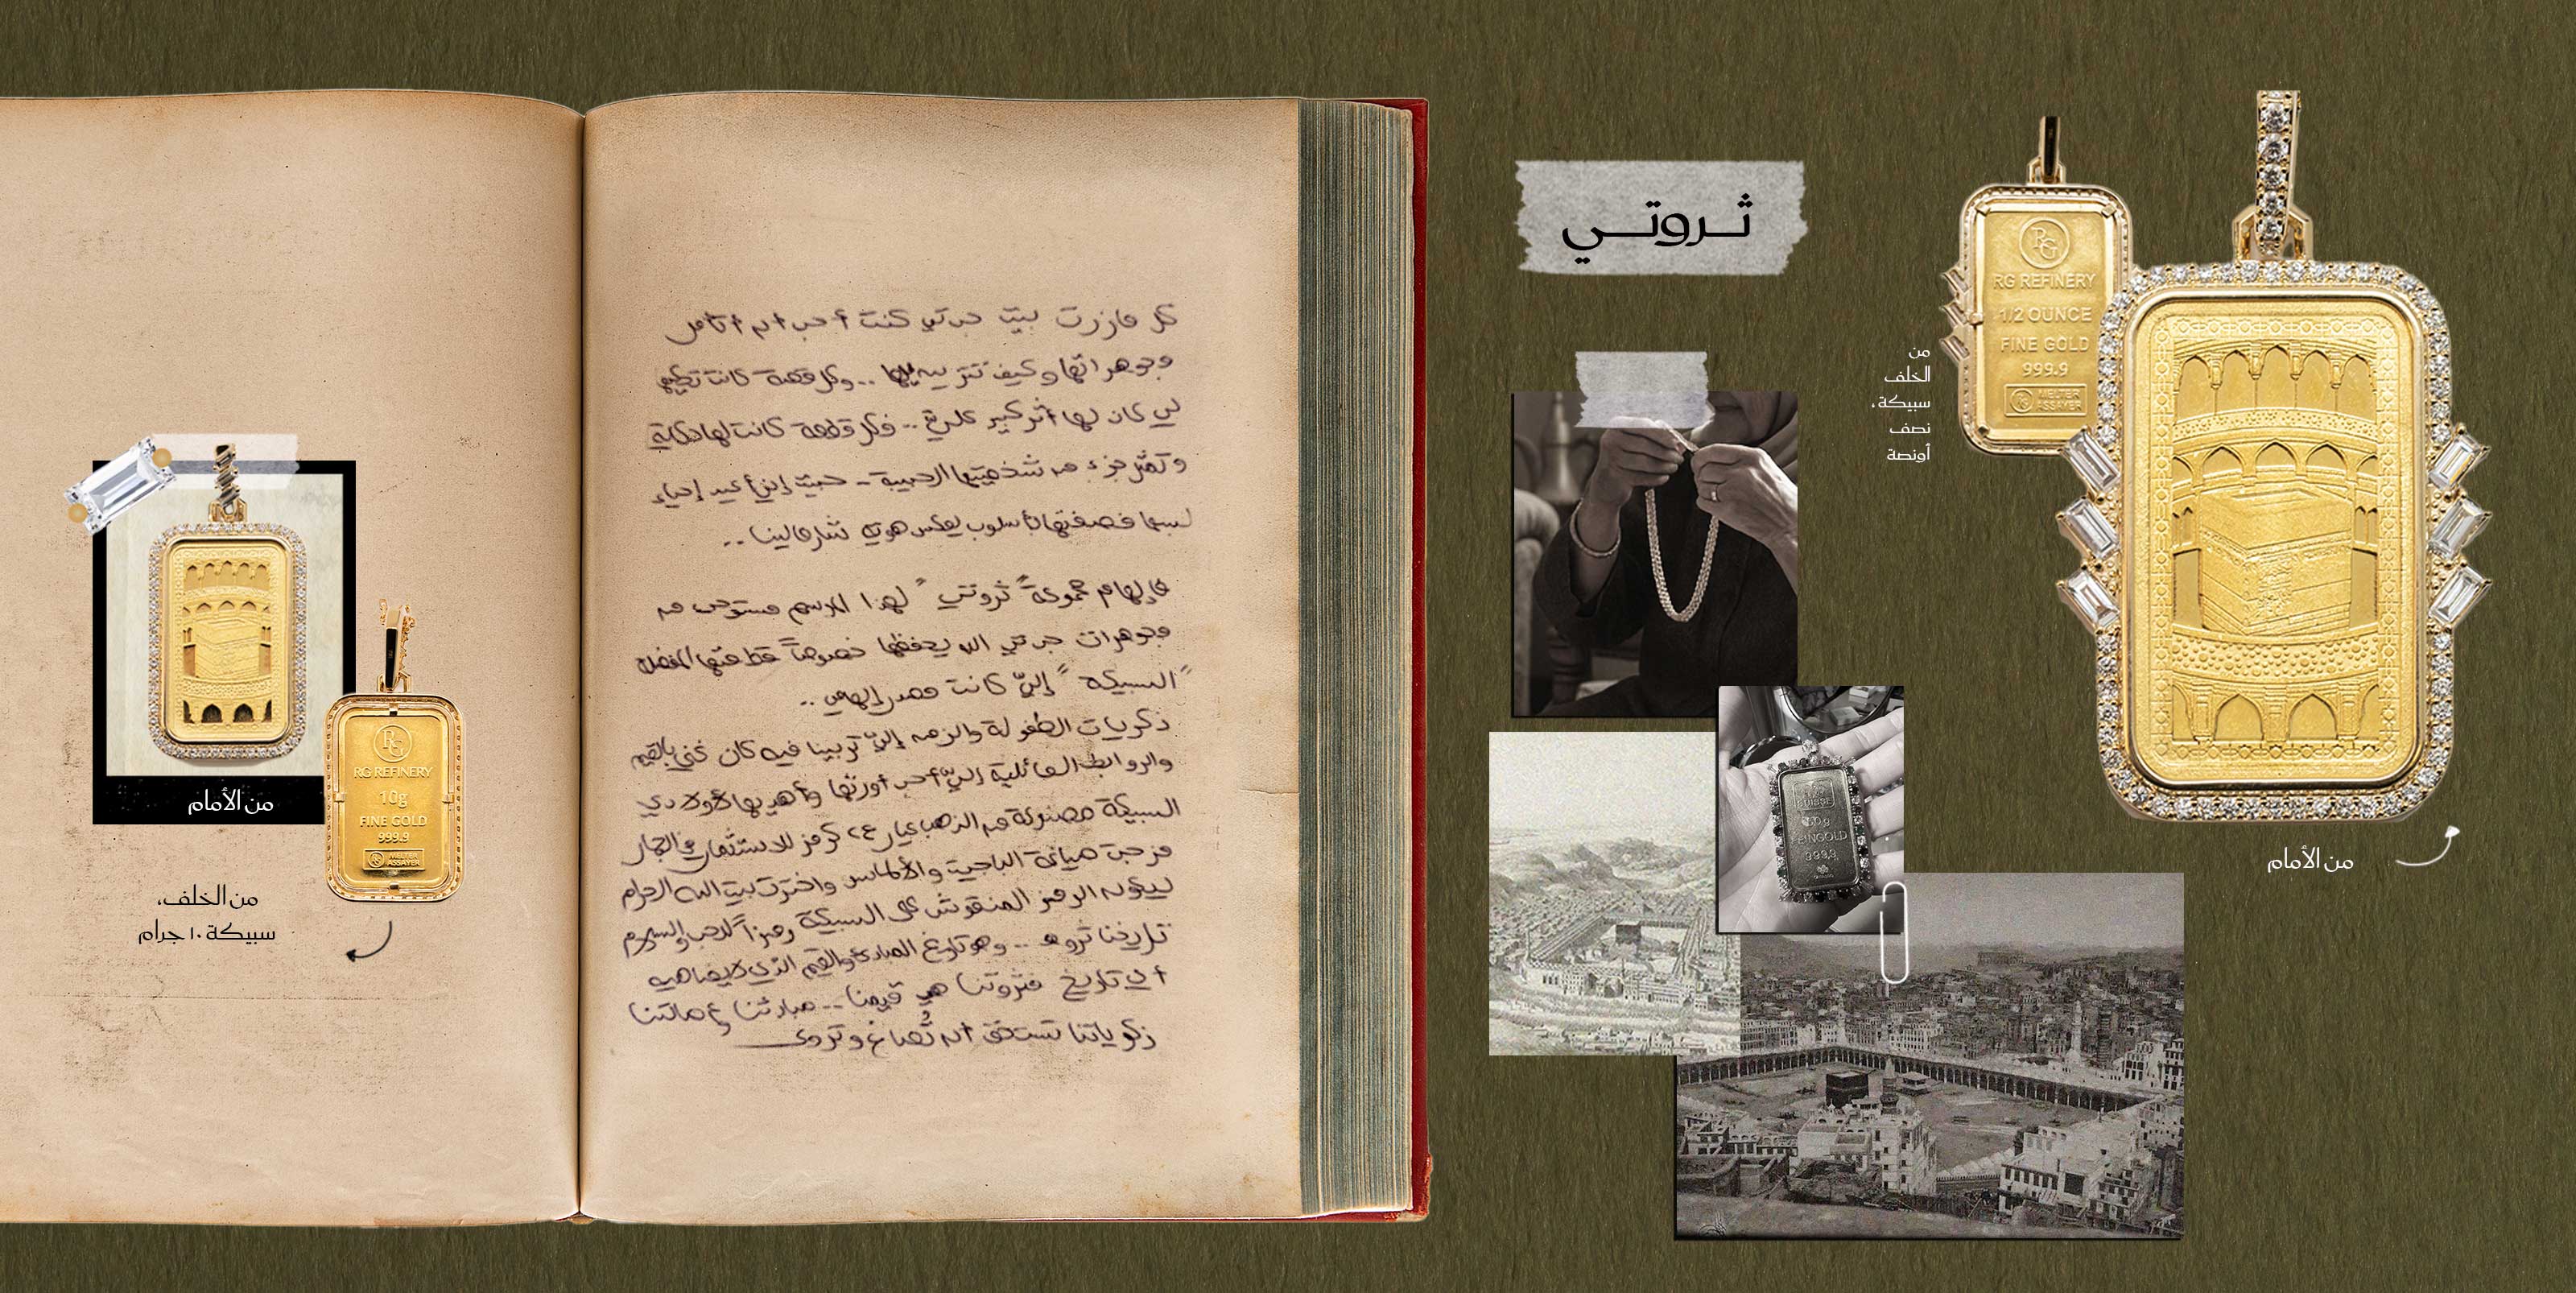 ثروتي
من
الخلف
سبيكة،
نصف
أونصة
RG
RG REFINERY
1/2 OUNCE
FINE GOLD
999.9
RG MELTER
ASSAYER
من الأمام
SUISSE
50g
FEINGOLD
999,9
كل ما زرت بيت جدتي كنت أحب أتأمل
مجوهراتها وكيف تتزين بيها .. وكل قصة كانت تحكيها
لي كان لها أثر كبير عليّ .. فكل قطعة كانت لها حكاية
وتمثل جزء من شخصيتها الحبيبة .. حبيت إني أعيد إحياء
فصغتها بأسلوب يعكس هوية
فإلهام مجموعة "ثروتي" لهذا الموسم مستوحى من
مجوهرات جدتي الله يحفظها خصوصاً قطعتها المفضلة
"السبيكة" إليّ كانت مصدر إلهامي ..
ذكريات الطفولة والزمن إليّ تربينا فيه كان غني بالقيم
والروابط العائلية إليّ أحب أورثها وأهديها لأولادي
السبيكة مصنوعة من الذهب عيار ٢٤ كرمز للاستثمار والجمال
مزجت صياغة الباجيت والألماس واخترت بيت الله الحرام
ليكون الرمز المنقوش على السبيكة رمزاً للحب والسلام
تاريخنا ثروة .. وهو تاريخ المبادئ والقيم الذي لا يضاهيه
أي تاريخ فثروتنا هي قيمنا .. مبادئنا وأصالتنا
ذكرياتنا تستحق أن تُصاغ وتروى
من الأمام
RG
RG REFINERY
10g
FINE GOLD
999.9
RG MELTER
ASSAYER
من الخلف،
سبيكة ١٠ جرام